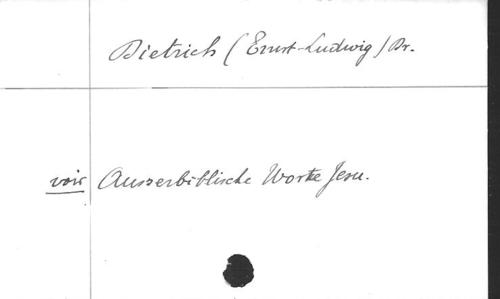 Dietrich (Ernst-Ludwig) Dr.
voir Ausserbiblische Worte Jesu.